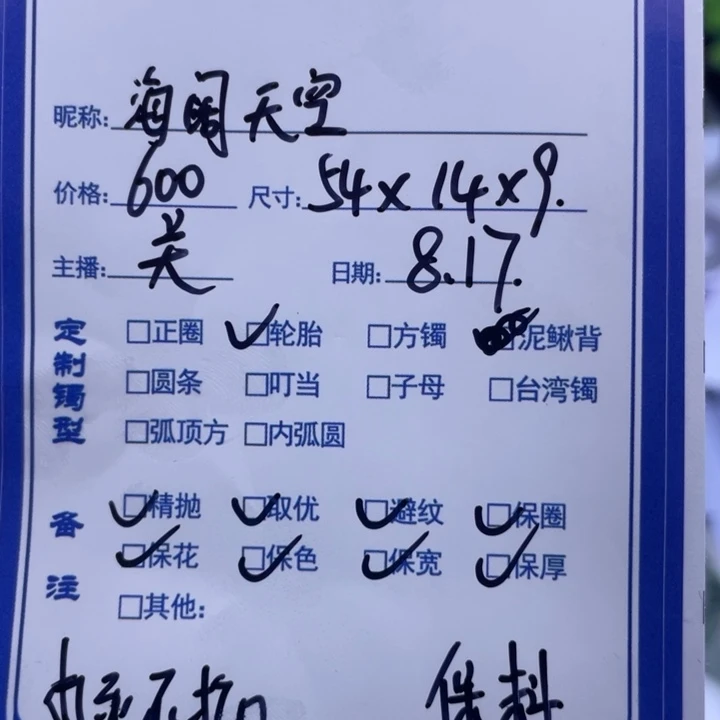 昵称: 海阔天空
价格: 600 尺寸: 54×14×9.
主播: 关 日期: 8.17.
定制镯型
□正圈 ✓□轮胎 □方镯 □泥鳅背
□圆条 □叮当 □子母 □台湾镯
□弧顶方 □内弧圆
备注
✓□精抛 ✓□取优 ✓□避纹 ✓□保圈
✓□保花 ✓□保色 ✓□保宽 ✓□保厚
□其他:
保料